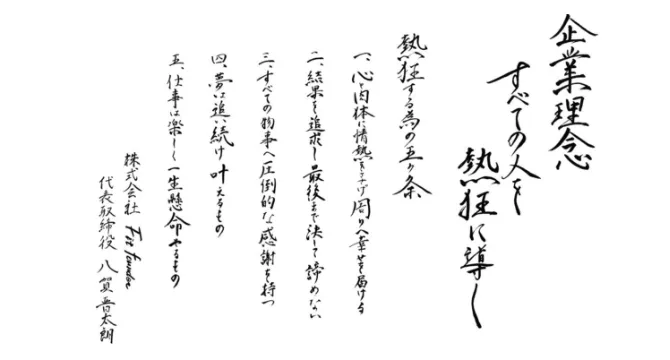 企業理念
すべての人を
熱狂に導く
熱狂する為の五ヶ条
一、心と肉体に情熱を捧げ周りへ幸せを届ける
二、結果を追求し最後まで決して諦めない
三、すべての物事へ圧倒的な感謝を持つ
四、夢は追い続け叶えるもの
五、仕事は楽しく一生懸命やるもの
株式会社
代表取締役 八賀晋太朗